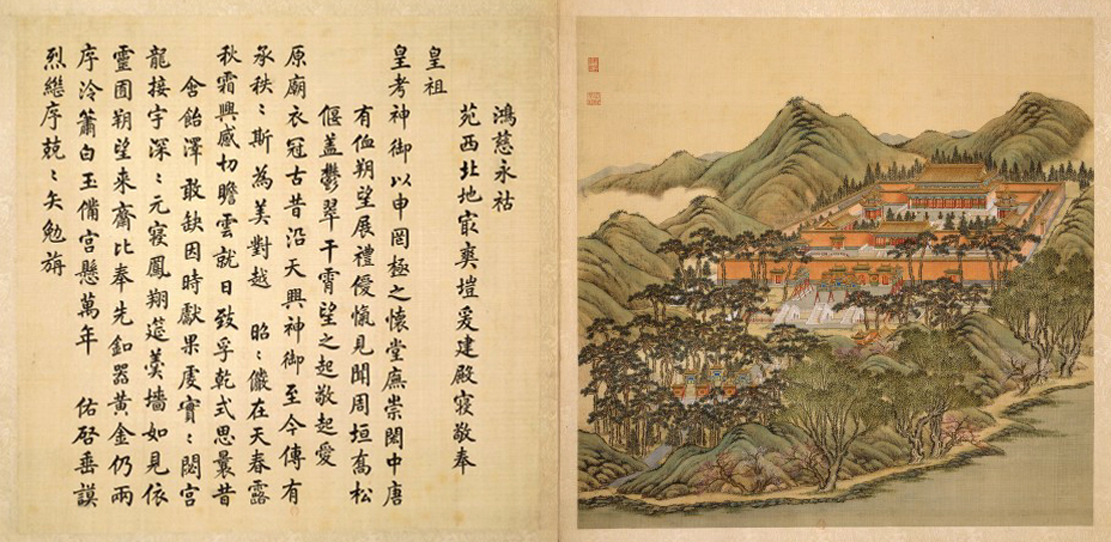 鴻慈永祜
苑西北地㝡爽塏爰建殿寢敬奉
皇祖
皇考神御以申罔極之懷堂廡崇閎中唐
有侐朔望展禮僾愾見聞周垣喬松
偃蓋鬱翠干霄望之起敬起愛
原廟衣冠古昔沿天興神御至今傳有
承秩〻斯為美對越 昭〻儼在天春露
秋霜興感切瞻雲就日致孚乾式思曩昔
含飴澤敢缺因時獻果虔實〻閟宮
龍接宇深〻元寢鳳翔筵羹墻如見依
靈囿朔望來齋比奉先釦器黃金仍兩
序泠簫白玉備宮懸萬年 佑啓垂謨
烈繼序兢〻矢勉旃